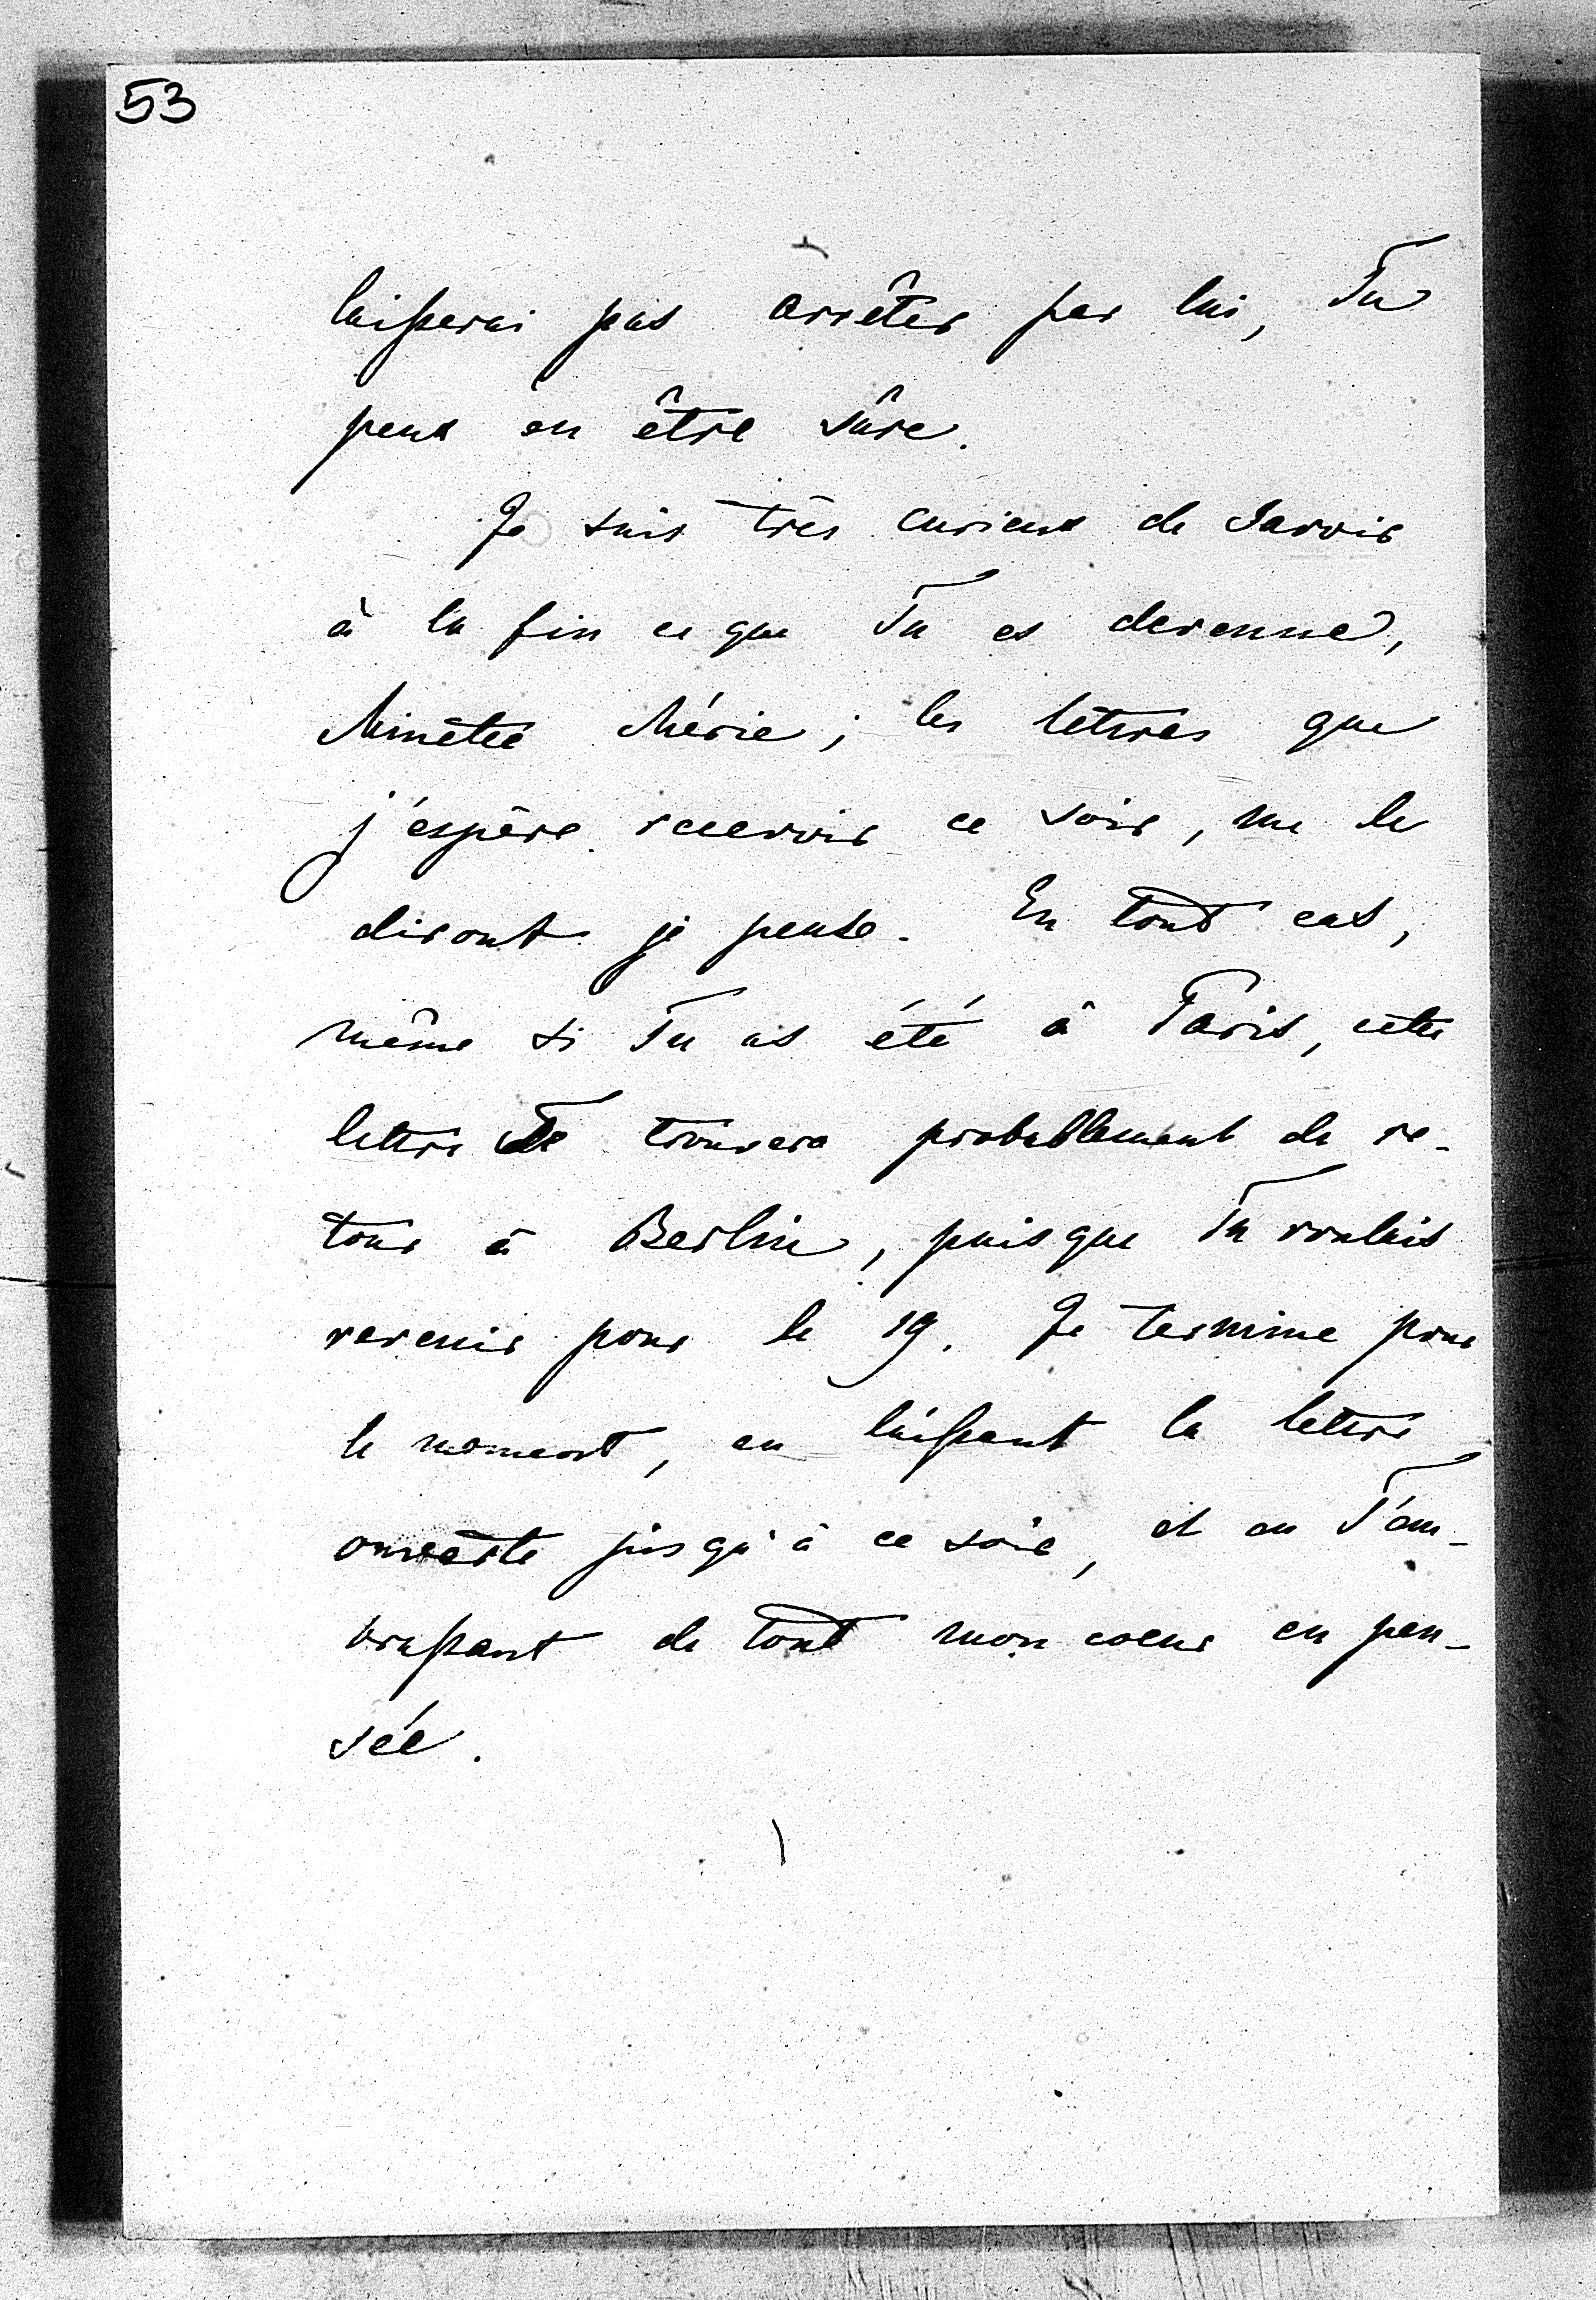 53
laisserai pas arrêter par lui, Tu
peux en être sûre.
Je suis très curieux de savoir
à la fin ce que Tu es devenue,
Minette chérie; les lettres que
j'espère recevoir ce soir, me le
diront je pense. En tout cas,
même si Tu as été à Paris, cette
lettre Te trouvera probablement de re-
tour à Berlin, puisque Tu voulais
revenir pour le 19. Je termine pour
le moment, en laissant la lettre
ouverte jusqu'à ce soir, et en T'em-
brassant de tout mon coeur en pen-
sée.